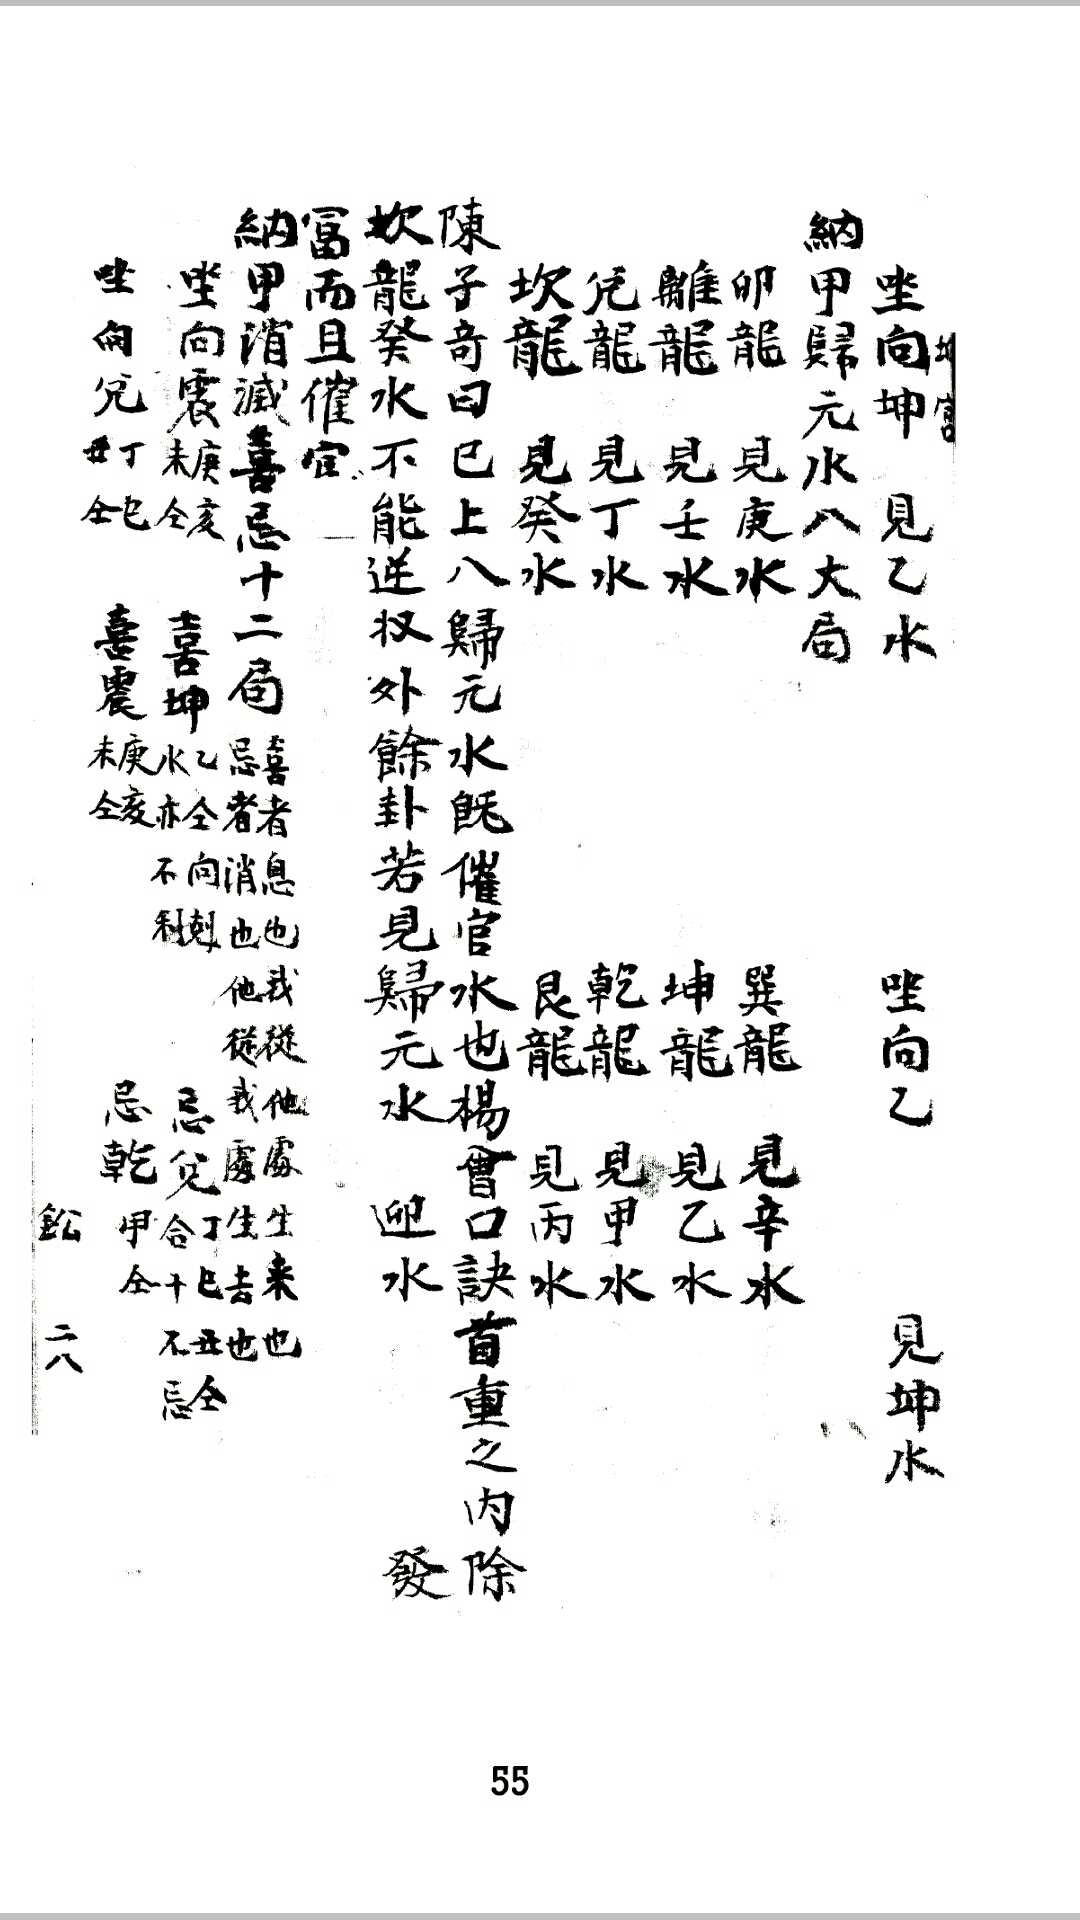 坤宮
坐向坤 見乙水 坐向乙 見坤水
納甲歸元水八大局
卯龍 見庚水 巽龍 見辛水
離龍 見壬水 坤龍 見乙水
兌龍 見丁水 乾龍 見甲水
坎龍 見癸水 艮龍 見丙水
陳子奇曰巳上八歸元水既催官水也楊曾口訣首重之内除
坎龍癸水不能逆收外餘卦若見歸元水 迎水 發
富而且催官
納甲消滅喜忌十二局 喜者息也我從他處生来也
忌者消也他從我處生去也
坐向震 庚亥未仝 喜坤 乙仝向剋水亦不利 忌兌 丁巳丑仝合十不忌
坐向兌 丁巳丑仝 喜震 庚亥未仝 忌乾 甲仝
二八
55